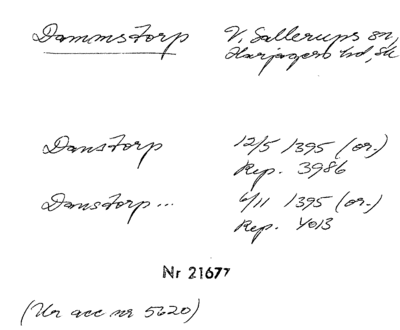 Dammstorp V. Sallerups sn,
Harjagers hd, Sk
Danstorp 12/5 1395 (or.)
Rep. 3986
Danstorp... 6/11 1395 (or.)
Rep. 4013
Nr 21677
(Ur acc nr 5620)